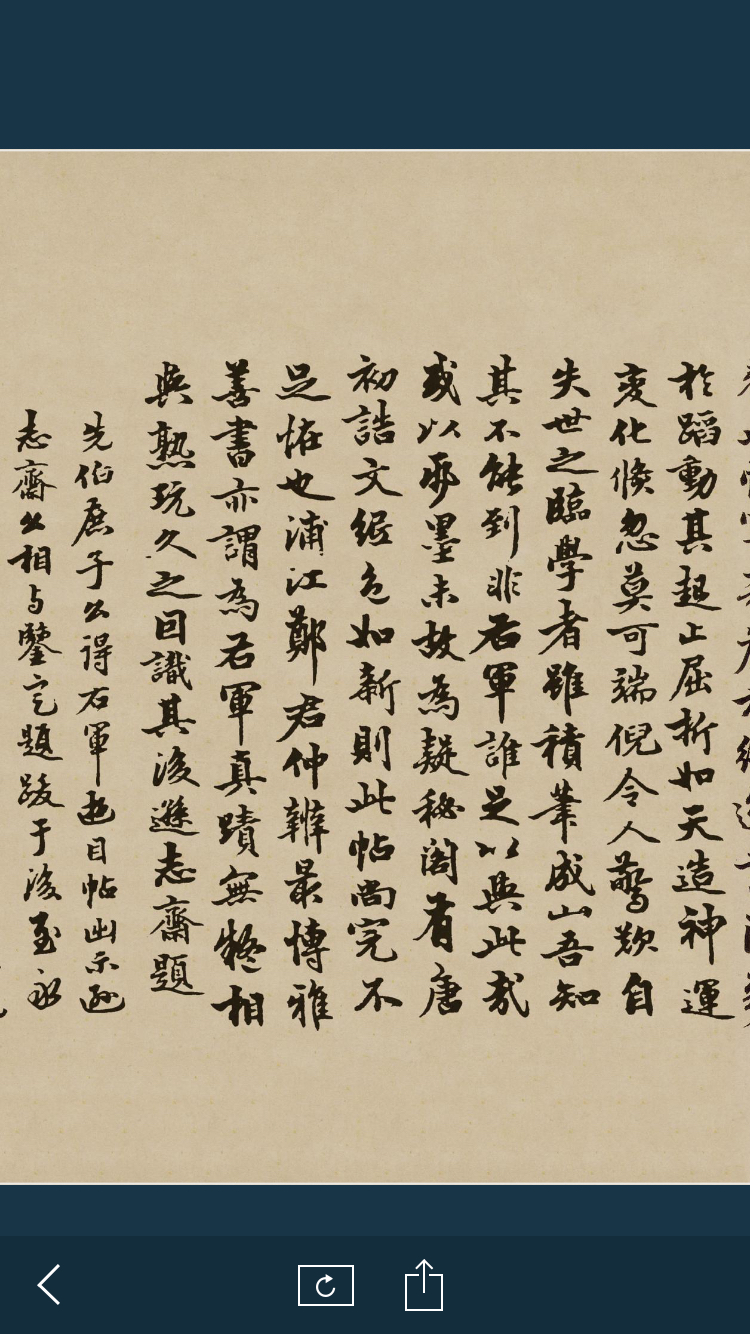 於蹈動其起止屈折如天造神運
变化倏忽莫可端倪令人驚歎自
失世之臨學者雖積筆成山吾知
其不能到非右軍誰足以與此哉
或以邪墨未故為疑秘閣有唐
初誥文經色如新則此帖尚完不
足恠也浦江鄭君仲辨最博雅
善書亦謂為右軍真蹟無疑相
與熟玩久之因識其後遜志齋題
先伯庶子公得右軍此帖出示
志齋公相与鑒定題跋于後至永